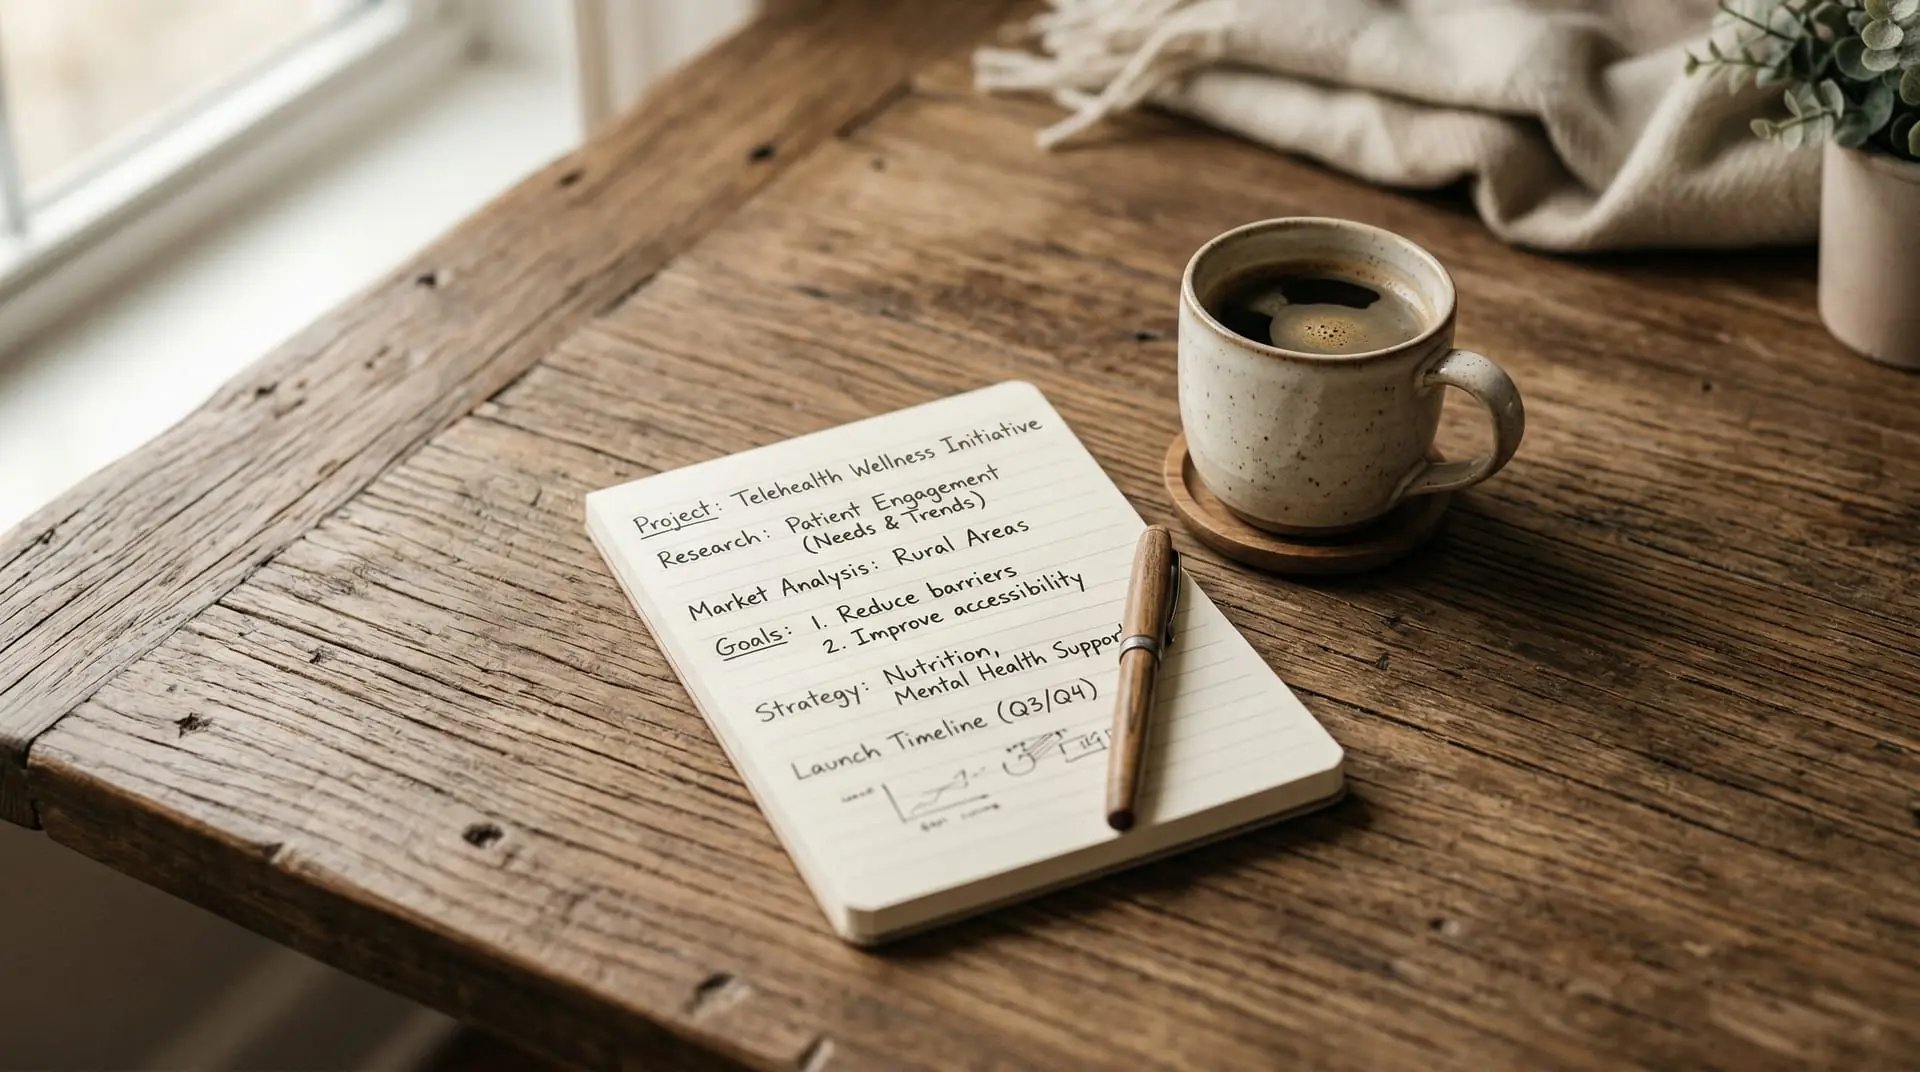 Project: Telehealth Wellness Initiative
Research: Patient Engagement
(Needs & Trends)
Market Analysis: Rural Areas
Goals: 1. Reduce barriers
2. Improve accessibility
Strategy: Nutrition,
Mental Health Support
Launch Timeline (Q3/Q4)